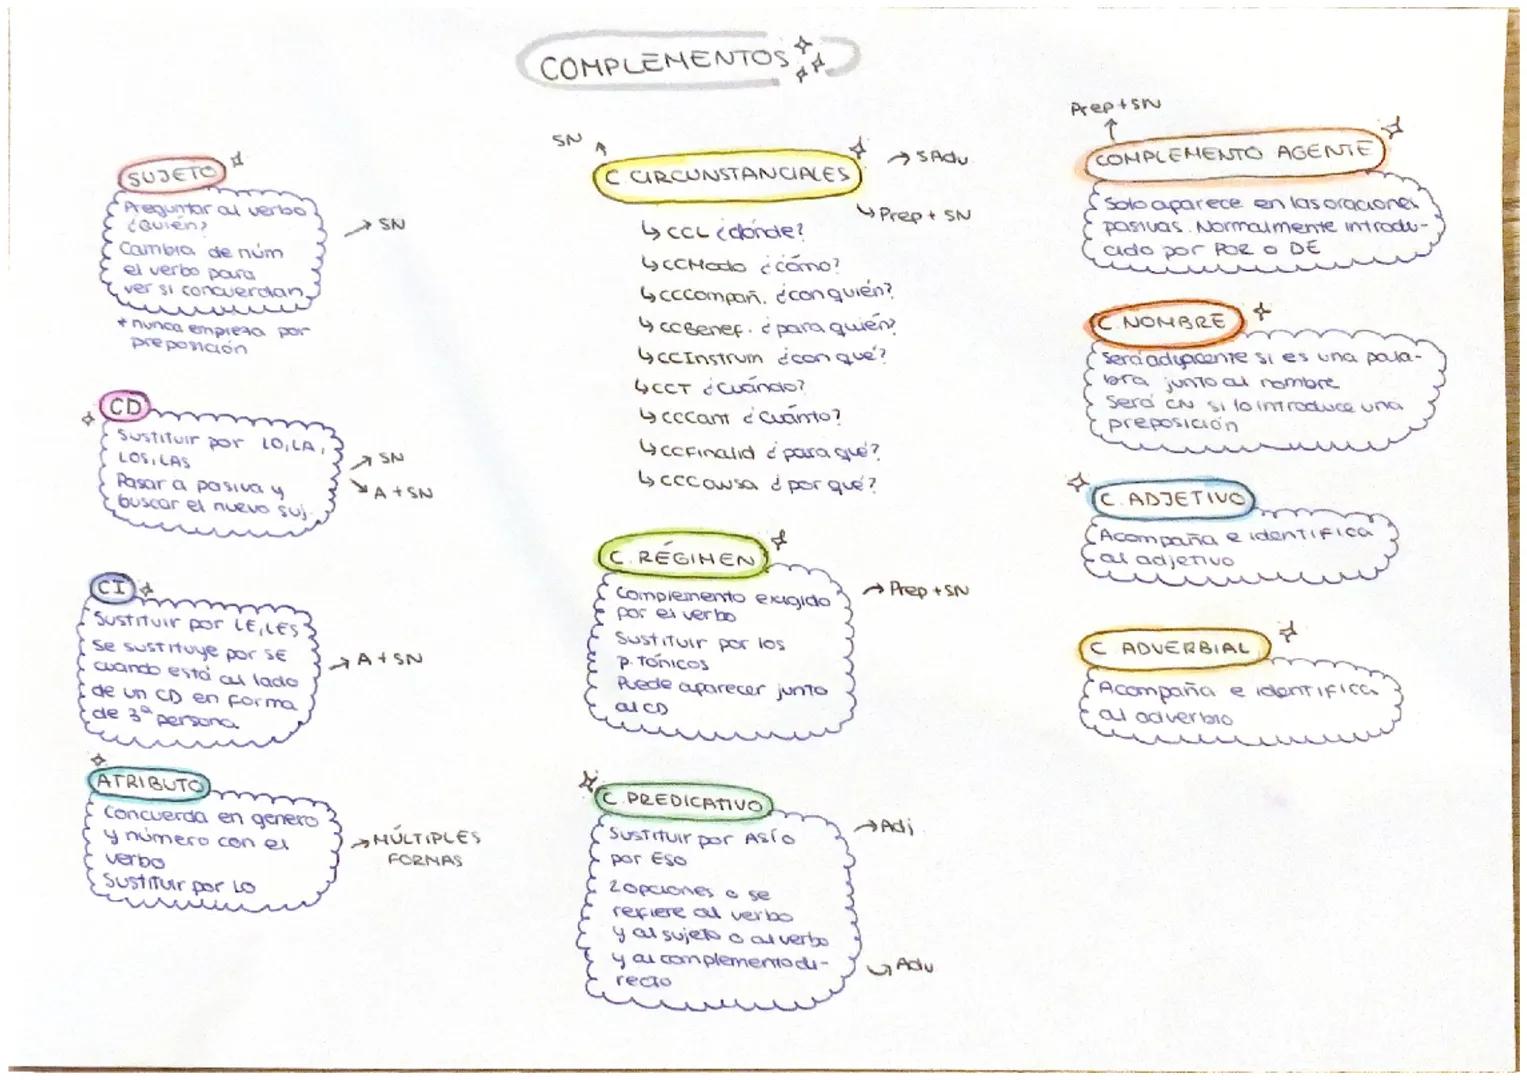 COMPLEMENTOS
SUJETO
Preguntar al verbo
¿Quién?
Cambia de núm
el verbo para
ver si concuerdan
→ SN
* nunca empieza por
preposición
CD
Sustituir por LO, LA,
LOS, LAS
Pasar a pasiva y
buscar el nuevo suj.
→ SN
→ A + SN
CI
Sustituir por LE, LES
Se sustituye por SE
cuando está al lado
de un CD en forma
de 3ª persona
→ A + SN
ATRIBUTO
Concuerda en genero
y número con el
verbo
Sustituir por LO
→ MÚLTIPLES
FORMAS
SN
C. CIRCUNSTANCIALES
→ SAdv
↳ Prep + SN
↳ CCL ¿dónde?
↳ CCModo ¿cómo?
↳ CCCompañ. ¿con quién?
↳ CCBenef. ¿para quién?
↳ CCInstrum ¿con qué?
↳ CCT ¿Cuándo?
↳ CCCant ¿Cuánto?
↳ CCFinalid ¿para qué?
↳ CCCausa ¿por qué?
C. RÉGIMEN
Complemento exigido
por el verbo
Sustituir por los
p. Tónicos
Puede aparecer junto
al CD
→ Prep + SN
C. PREDICATIVO
Sustituir por ASÍ o
por ESO
2 opciones o se
refiere al verbo
y al sujeto o al verbo
y al complemento di-
recto
→ Adj
→ Adv
Prep + SN
COMPLEMENTO AGENTE
Solo aparece en las oraciones
pasivas. Normalmente introdu-
cido por POR o DE
C. NOMBRE
Será adyacente si es una pala-
bra junto al nombre
Será CN si lo introduce una
preposición
C. ADJETIVO
Acompaña e identifica
al adjetivo
C. ADVERBIAL
Acompaña e identifica
al adverbio